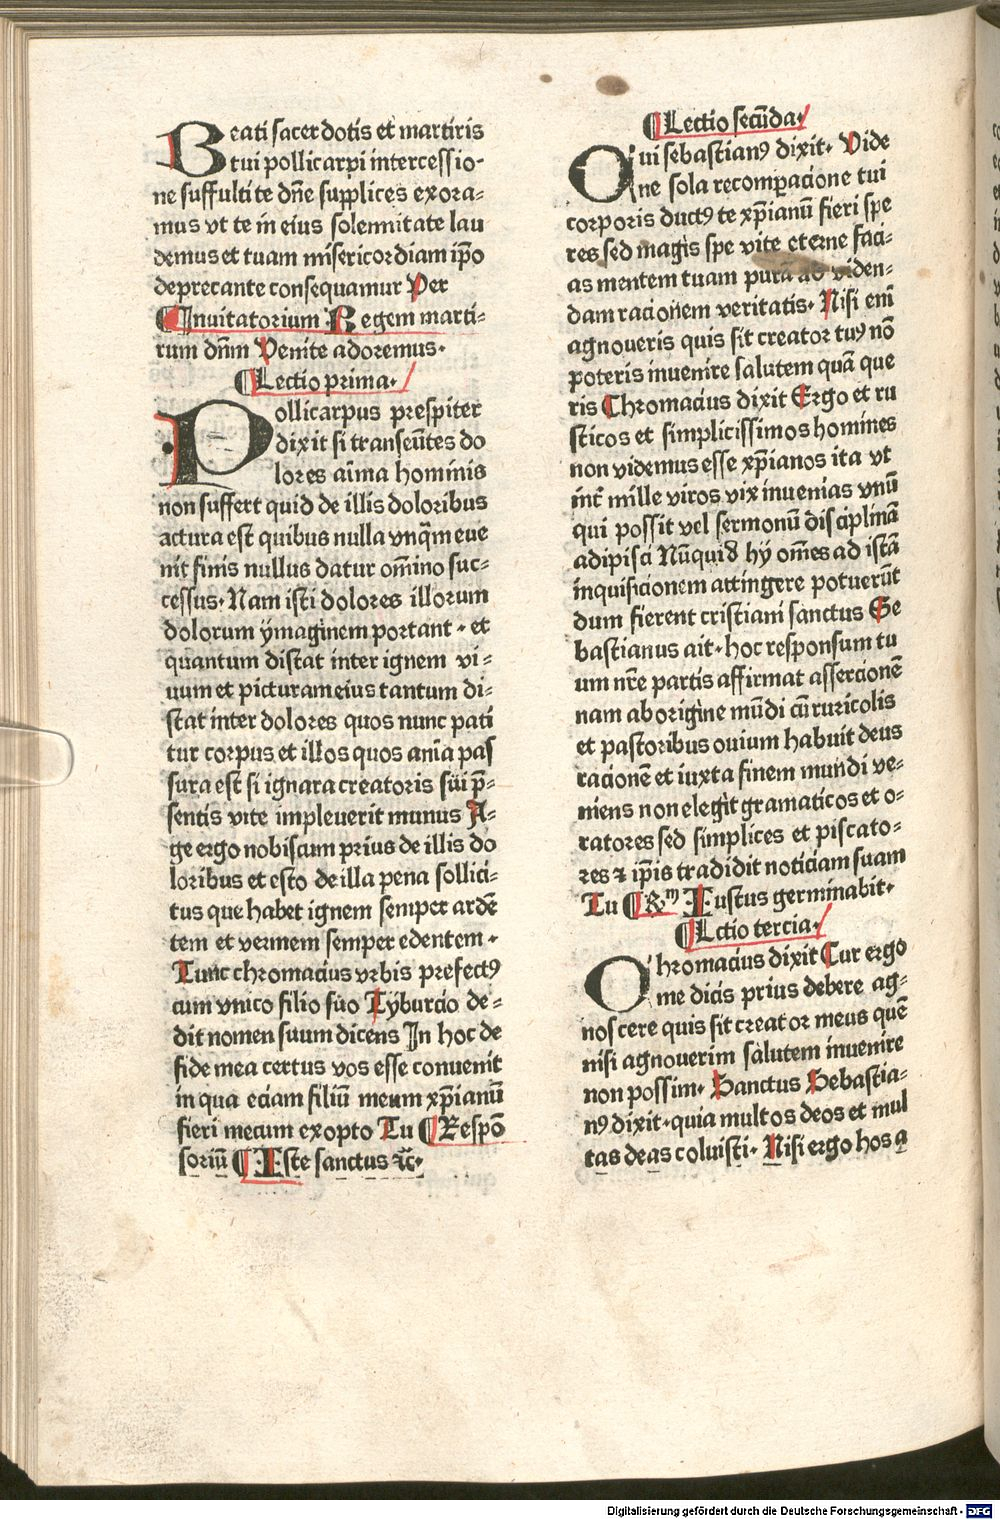 Beati sacerdotis et martiris
tui pollicarpi intercessio-
ne suffulti te dn̄e supplices exora-
mus vt te in eius solennitate lau
demus et tuam misericordiam ip̄o
deprecante consequamur Per
¶Inuitatorium Regem marti-
rum dn̄m Venite adoremus.
¶Lectio prima.
Pollicarpus prespiter
dixit si transeūtes do
lores aīma hominis
non suffert quid de illis doloribus
actura est quibus nulla vnq̄m eue
nit finis nullus datur om̄ino suc-
cessus. Nam isti dolores illorum
dolorum ymaginem portant. et
quantum distat inter ignem vi-
uum et picturam eius tantum di-
stat inter dolores quos nunc pati
tur corpus et illos quos aīma pas
sura est si ignara creatoris sui p̄-
sentis vite impleuerit munus A-
ge ergo nobiscum prius de illis do
loribus et esto de illa pena sollici-
tus que habet ignem semper ardē
tem et vermem semper edentem.
Tunc chromacius vrbis prefectꝰ
cum vnico filio suo Tyburcio de-
dit nomen suum dicens In hoc de
fide mea certus vos esse conuenit
in qua eciam filiū meum xp̄ianū
fieri mecum exopto Tu ¶Respō
soriū ¶Iste sanctus ⁊c̄.
¶Lectio secūda.
Cui sebastianꝰ dixit. Vide
ne sola recomꝑacione tui
corporis ductꝰ te xp̄ianū fieri spe
res sed magis spe vite eterne faci-
as mentem tuam purā ad viden-
dam racionem veritatis. Nisi enī
agnoueris quis sit creator tuꝰ nō
poteris inuenire salutem quā que
ris Chromacius dixit Ergo et ru
sticos et simplicissimos homines
non videmus esse xp̄ianos ita vt
int̄ mille viros vix inuenias vnū
qui possit vel sermonū disciplinā
adipisci Nūquid hy om̄es ad istā
inquisicionem attingere potuerūt
dum fierent cristiani sanctus Se
bastianus ait. hoc responsum tu
um nr̄e partis affirmat assercionē
nam ab origine mūdi cū ruricolis
et pastoribus ouium habuit deus
racionē et iuxta finem mundi ve-
niens non elegit gramaticos et o-
ratores sed simplices et piscato-
res ⁊ ip̄is tradidit noticiam suam
Tu ¶℟m Iustus germinabit.
¶Lctio tercia.
Chromacius dixit Cur ergo
me dicis prius debere ag-
noscere quis sit creator meus quē
nisi agnouerim salutem inuenire
non possim. Sanctus Sebastia-
nꝰ dixit. quia multos deos et mul
tas deas coluisti. Nisi ergo hos a
Digitalisierung gefördert durch die Deutsche Forschungsgemeinschaft - DFG